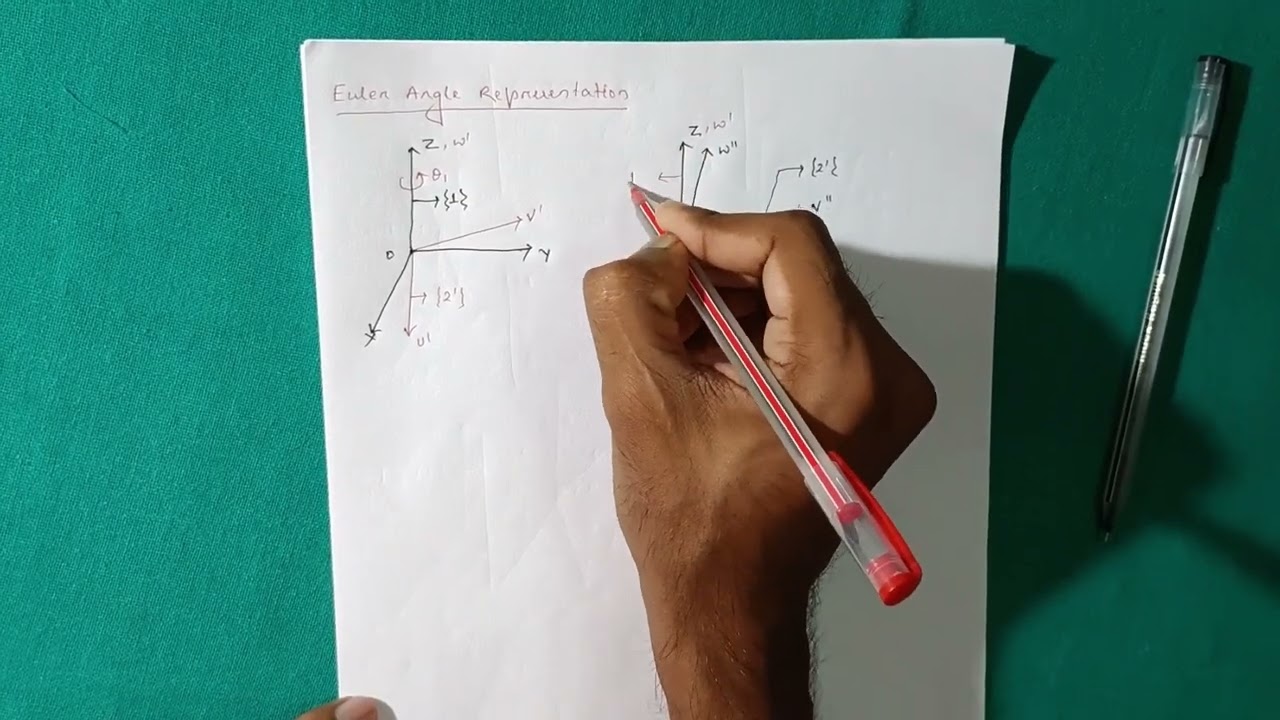 Euler Angle Representation
Z, w'
θ₁
{1}
v'
O
Y
{2'}
X
u'
Z, w'
w"
{2'}
v"